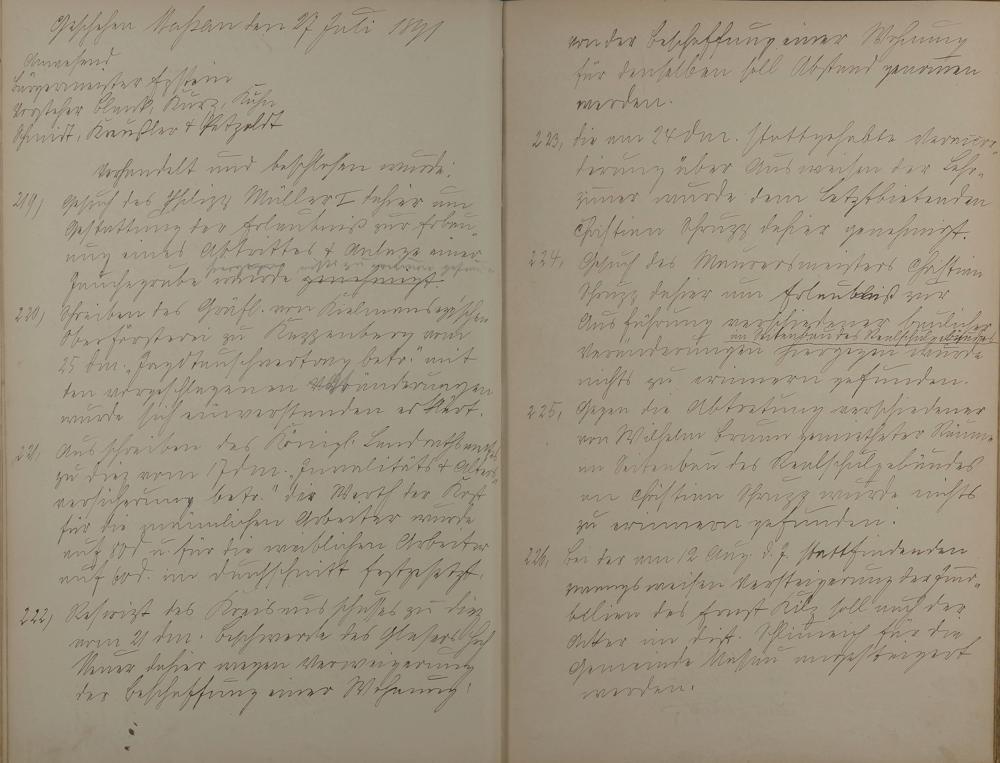 Geschehen Nassau den 27 Juli 1891
Anwesend
Bürgermeister Epstein
Vorsteher Blank, Kurz, Kuhn
Schmidt, Knußler & Petzoldt
Verhandelt und beschlossen wurde:
219, Gesuch des Philipp Müller I dahier um
Gestattung der Erlaubniß zur Erbau-
ung eines Abtrittes & Anlage einer
hiergegen nichts zu erinnern
Jauchegrube wurde genehmigt
220, Schreiben des Gräfl. von Kielmansegg'schen
Oberförsterei zu vom
25 dm. "Jagdtauschvertrag betr. mit
den vorgeschlagenen Veränderungen
wurde sich einverstanden erklärt.
221, Ausschreiben des Königl. Landrathsamtes
zu Diez vom 17 dm. "Invaliditäts & Alters-
versicherung betr." die Werth der Kost
für die männlichen Arbeiter wurde
auf 80 d u. für die weiblichen Arbeiter
auf 60 d. im Durchschnitt festgesetzt.
222, Rescript des Kreisausschusses zu Diez
vom 21 dm. Beschwerde des Glasers
dahier wegen Verweigerung
der Beschaffung einer Wohnung.
von der Beschaffung einer Wohnung
für denselben soll Abstand genommen
werden.
223, die am 24 dm. stattgehabte
über Ausweisen der Lehr-
zimer wurde dem Letztbietenden
Christian Strupp dahier genehmigt.
224, Gesuch des Maurermeisters Christian
Strupp dahier um Erlaubniß zur
Ausführung verschiedener baulicher
im Seitenbau des Realschulgebäudes
Veränderungen hiergegen wurde
nichts zu erinnern gefunden.
225, Gegen die Abtretung verschiedener
von Wilhelm Bruun gemietheter Räume
im Seitenbau des Realschulgebäudes
an Christian Strupp wurde nichts
zu erinnern gefunden.
226, Bei der am 12 Aug. d. J. stattfindenden
zwangsweisen Versteigerung der Immo-
bilien des Ernst soll auch der
Acker im Dist. für die
Gemeinde Nassau angesteigert
werden.